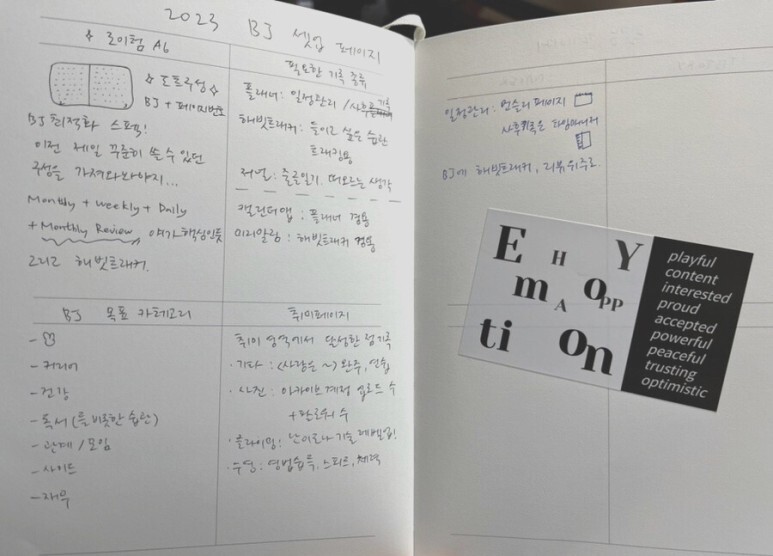 2023 BJ 셋업 페이지
✧ 로이텀 A6
✧ 도트구성 ✧
BJ + 페이지번호
BJ 최적화 스펙!
이전 제일 꾸준히 쓸 수 있던
구성을 가져와봐야지...
Monthly + Weekly + Daily
+ Monthly Review 여기가 핵심인듯
그리고 해빗트래커.
필요한 기록 종류
플래너: 일정관리 / 사후기록
해빗트래커: 들이고 싶은 습관
트래킹용
저널: 줄글일기. 떠오르는 생각
캘린더앱: 플래너 겸용
미리알림: 해빗트래커 겸용
BJ 목표 카테고리
- 커리어
- 건강
- 독서 (를 비롯한 습관)
- 관계 / 모임
- 사이드
- 재무
취미페이지
취미 영역에서 달성한 점 기록
· 기타: <사랑은 ~> 완주, 연습
· 사진: 아카이브 계정 업로드 수
+ 팔로워 수
· 클라이밍: 난이도나 기술 레벨업!
· 수영: 영법습득, 스피드, 체력
일정관리: 먼슬리 페이지
사후기록은 타임매니저
BJ에 해빗트래커, 리뷰 위주로.
E H Y
m A OPP
ti on
playful
content
interested
proud
accepted
powerful
peaceful
trusting
optimistic